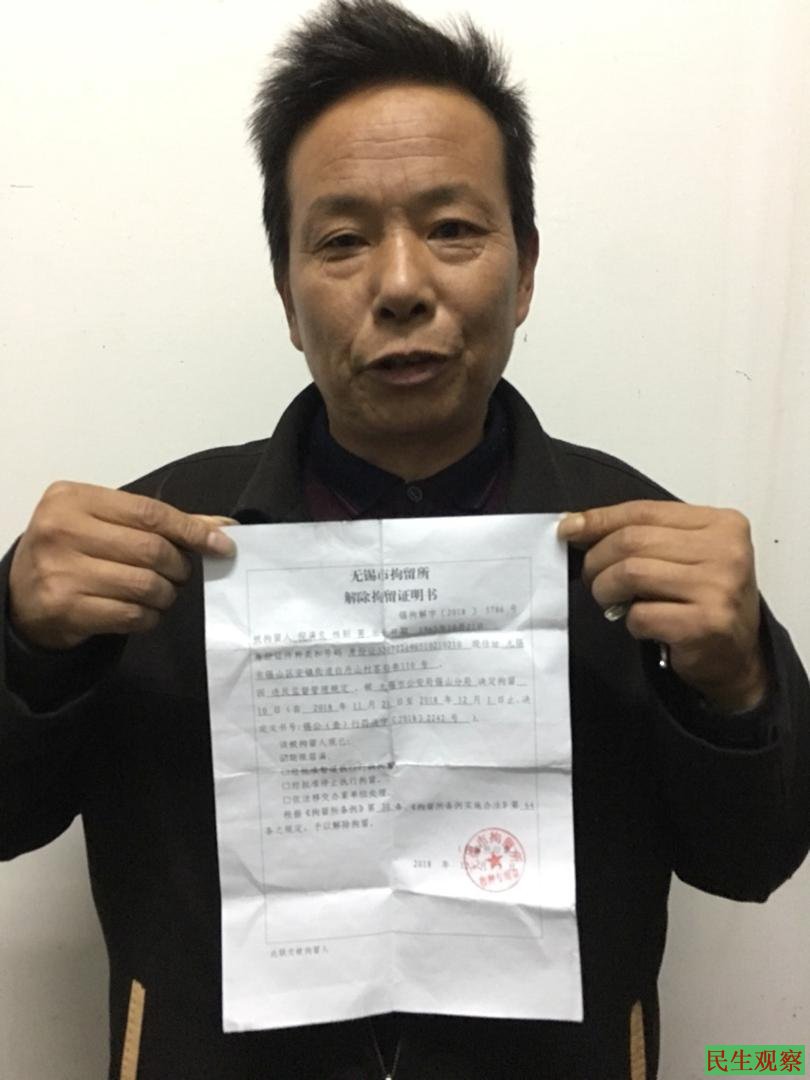 无锡市拘留所
解除拘留证明书
锡拘解字〔2018〕 号
被拘留人 性别 男
身份证件种类和号码 身份证 现住址 无锡
市锡山区安镇街道白丹山村 110号,
因 违反监督管理规定,被 无锡市公安局锡山分局 决定拘留
10日(自 2018 年 11 月 21 日至 2018 年 12 月 1 日止,决
定文书号:锡公( )行罚决字〔2018〕2242 号 )。
该被拘留人现已:
☑期限届满。
□经批准
□经批准停止执行拘留。
□依法移交办案单位处理。
根据《拘留所条例》第 30 条、《拘留所条例实施办法》第 64
条之规定,予以解除拘留。
2018 年
此联交被拘留人
民生观察